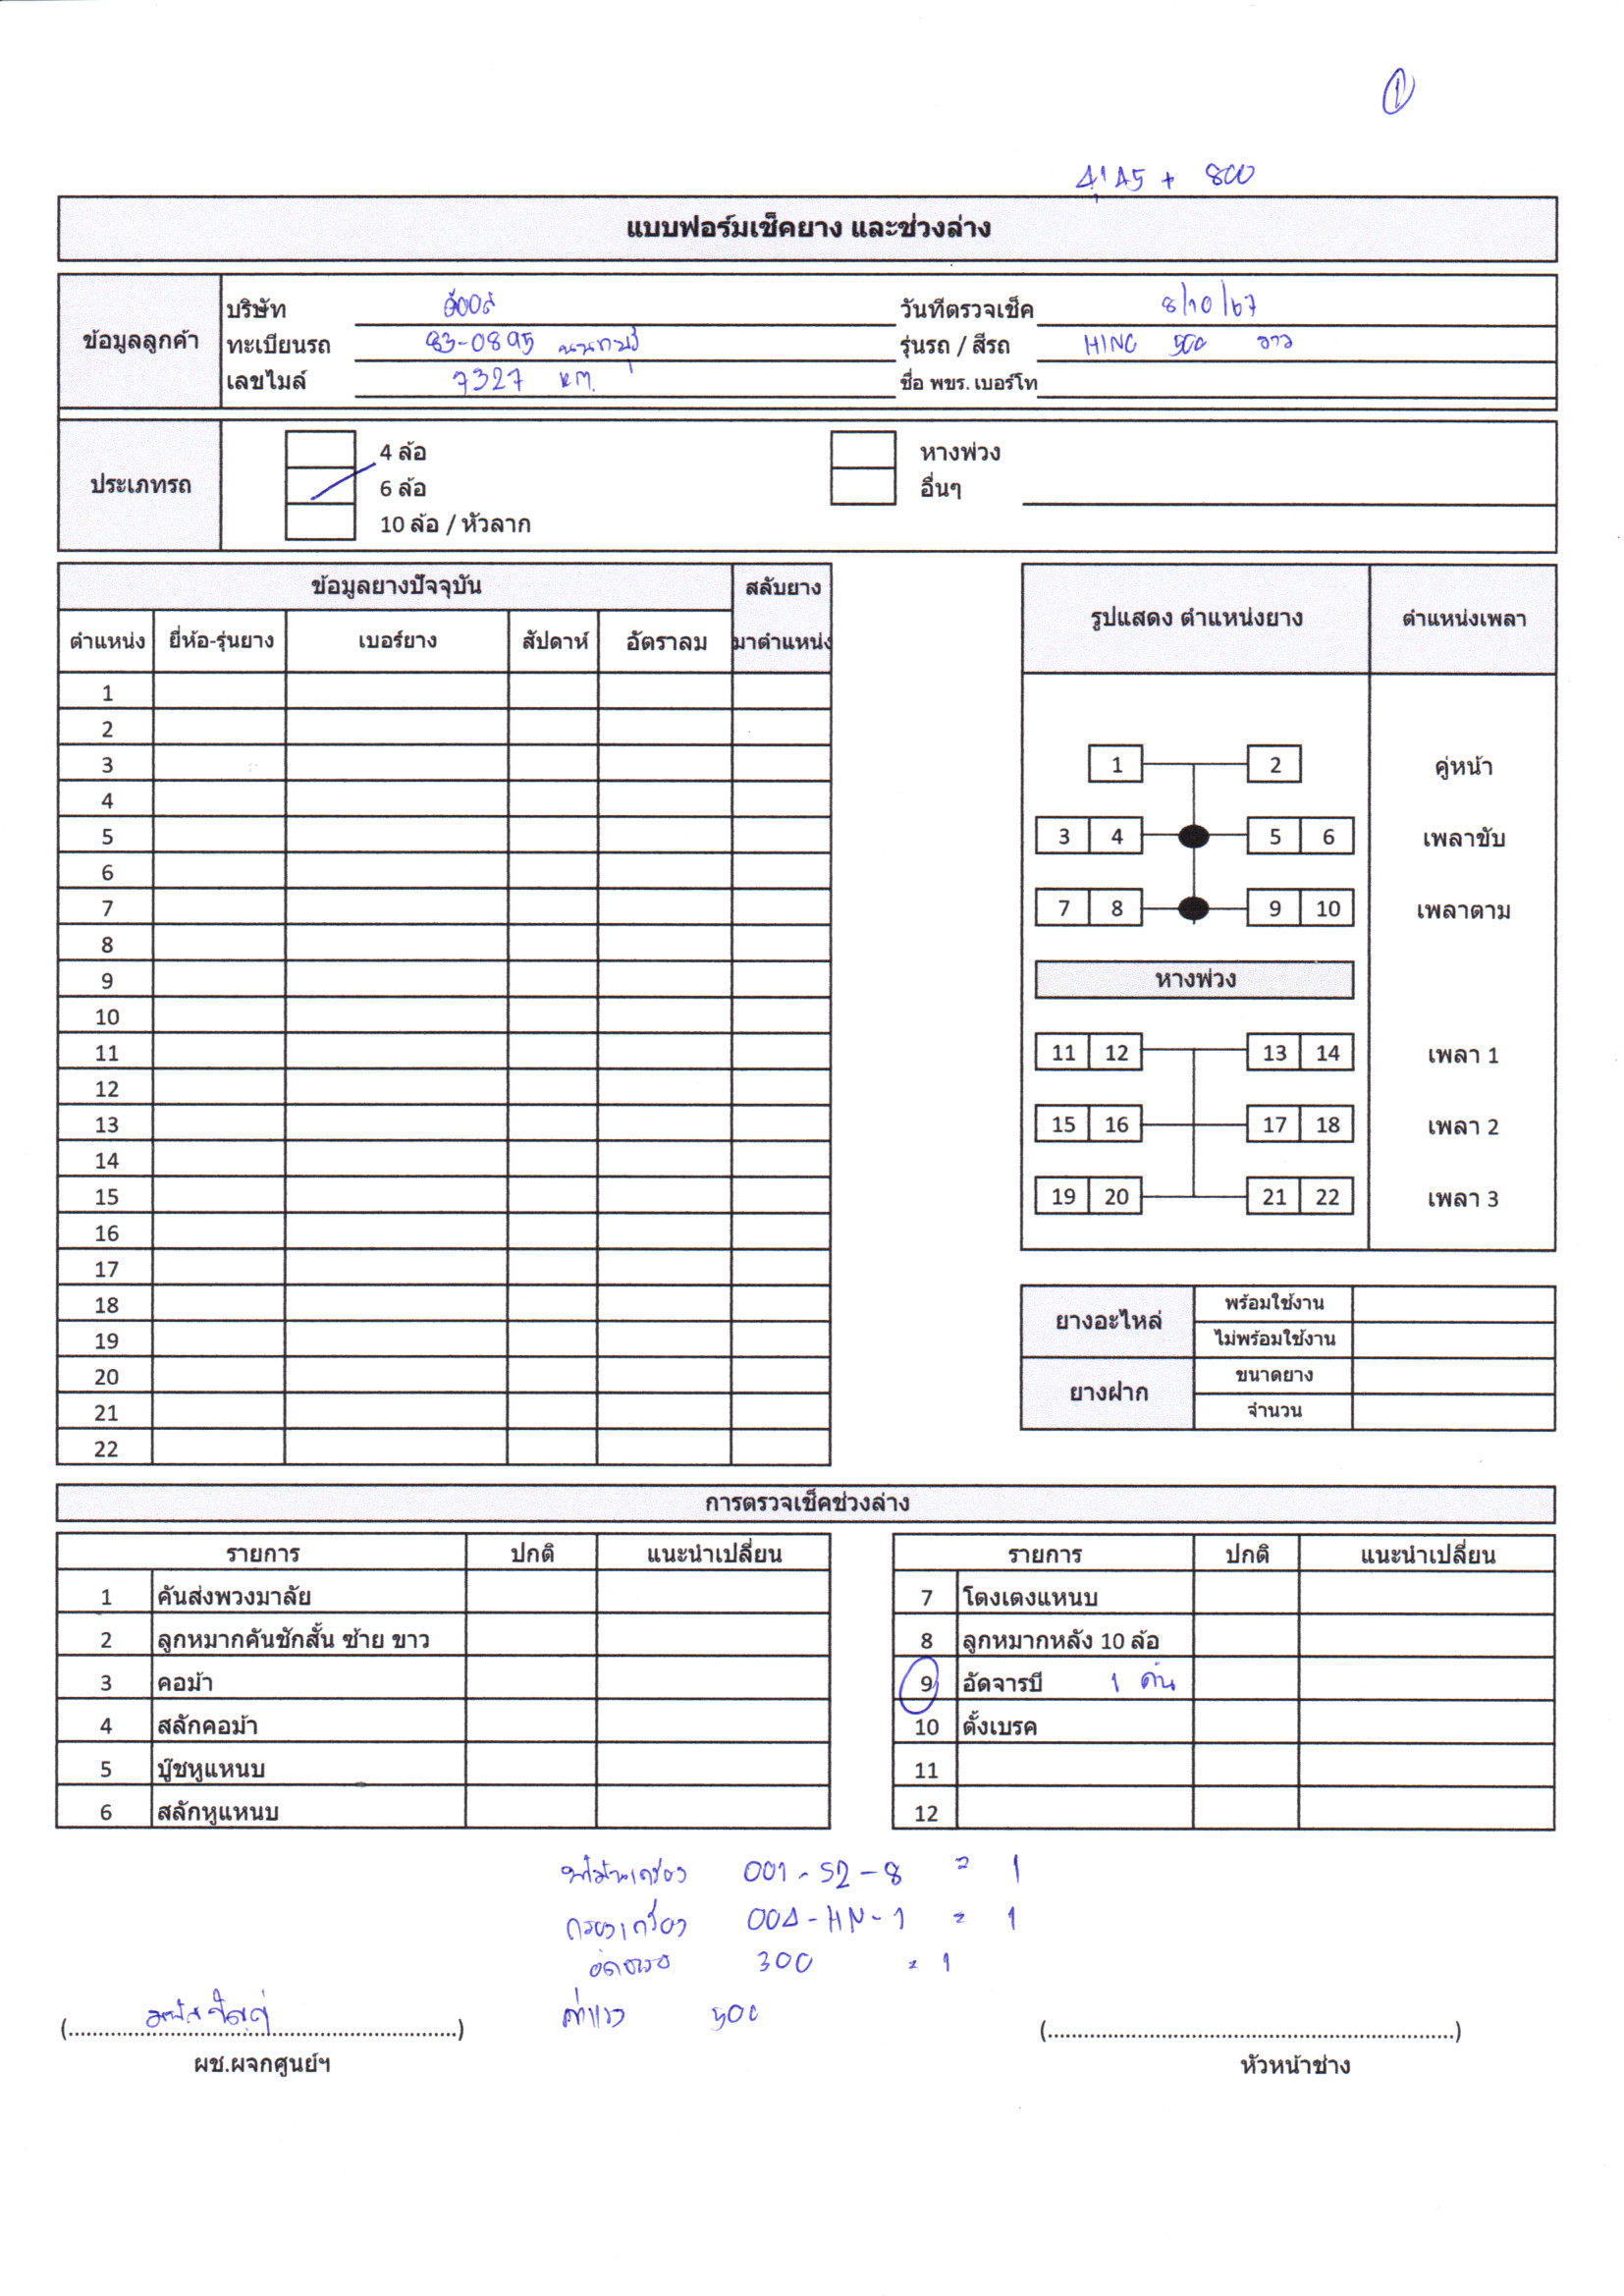 1
4,145 + 800
แบบฟอร์มเช็คยาง และช่วงล่าง
ข้อมูลลูกค้า
บริษัท
วันที่ตรวจเช็ค 8/10/67
ทะเบียนรถ 83-0895 นนทบุรี
รุ่นรถ / สีรถ HINO 500 ขาว
เลขไมล์ 7327 KM.
ชื่อ พขร. เบอร์โท
ประเภทรถ
4 ล้อ
6 ล้อ
10 ล้อ / หัวลาก
หางพ่วง
อื่นๆ
ข้อมูลยางปัจจุบัน สลับยาง
ตำแหน่ง ยี่ห้อ-รุ่นยาง เบอร์ยาง สัปดาห์ อัตราลม มาตำแหน่ง
1
2
3
4
5
6
7
8
9
10
11
12
13
14
15
16
17
18
19
20
21
22
รูปแสดง ตำแหน่งยาง ตำแหน่งเพลา
1 2 คู่หน้า
3 4 5 6 เพลาขับ
7 8 9 10 เพลาตาม
หางพ่วง
11 12 13 14 เพลา 1
15 16 17 18 เพลา 2
19 20 21 22 เพลา 3
ยางอะไหล่ พร้อมใช้งาน
ไม่พร้อมใช้งาน
ยางฝาก ขนาดยาง
จำนวน
การตรวจเช็คช่วงล่าง
รายการ ปกติ แนะนำเปลี่ยน
1 คันส่งพวงมาลัย
2 ลูกหมากคันชักสั้น ซ้าย ขาว
3 คอม้า
4 สลักคอม้า
5 บู๊ชหูแหนบ
6 สลักหูแหนบ
รายการ ปกติ แนะนำเปลี่ยน
7 โตงเตงแหนบ
8 ลูกหมากหลัง 10 ล้อ
9 อัดจารบี 1 คัน
10 ตั้งเบรค
11
12
น้ำมันเครื่อง 001-S2-8 = 1
กรองเครื่อง 004-HN-1 = 1
300 = 1
ค่าแรง 500
(..............................)
ผช.ผจกศูนย์ฯ
(..............................)
หัวหน้าช่าง